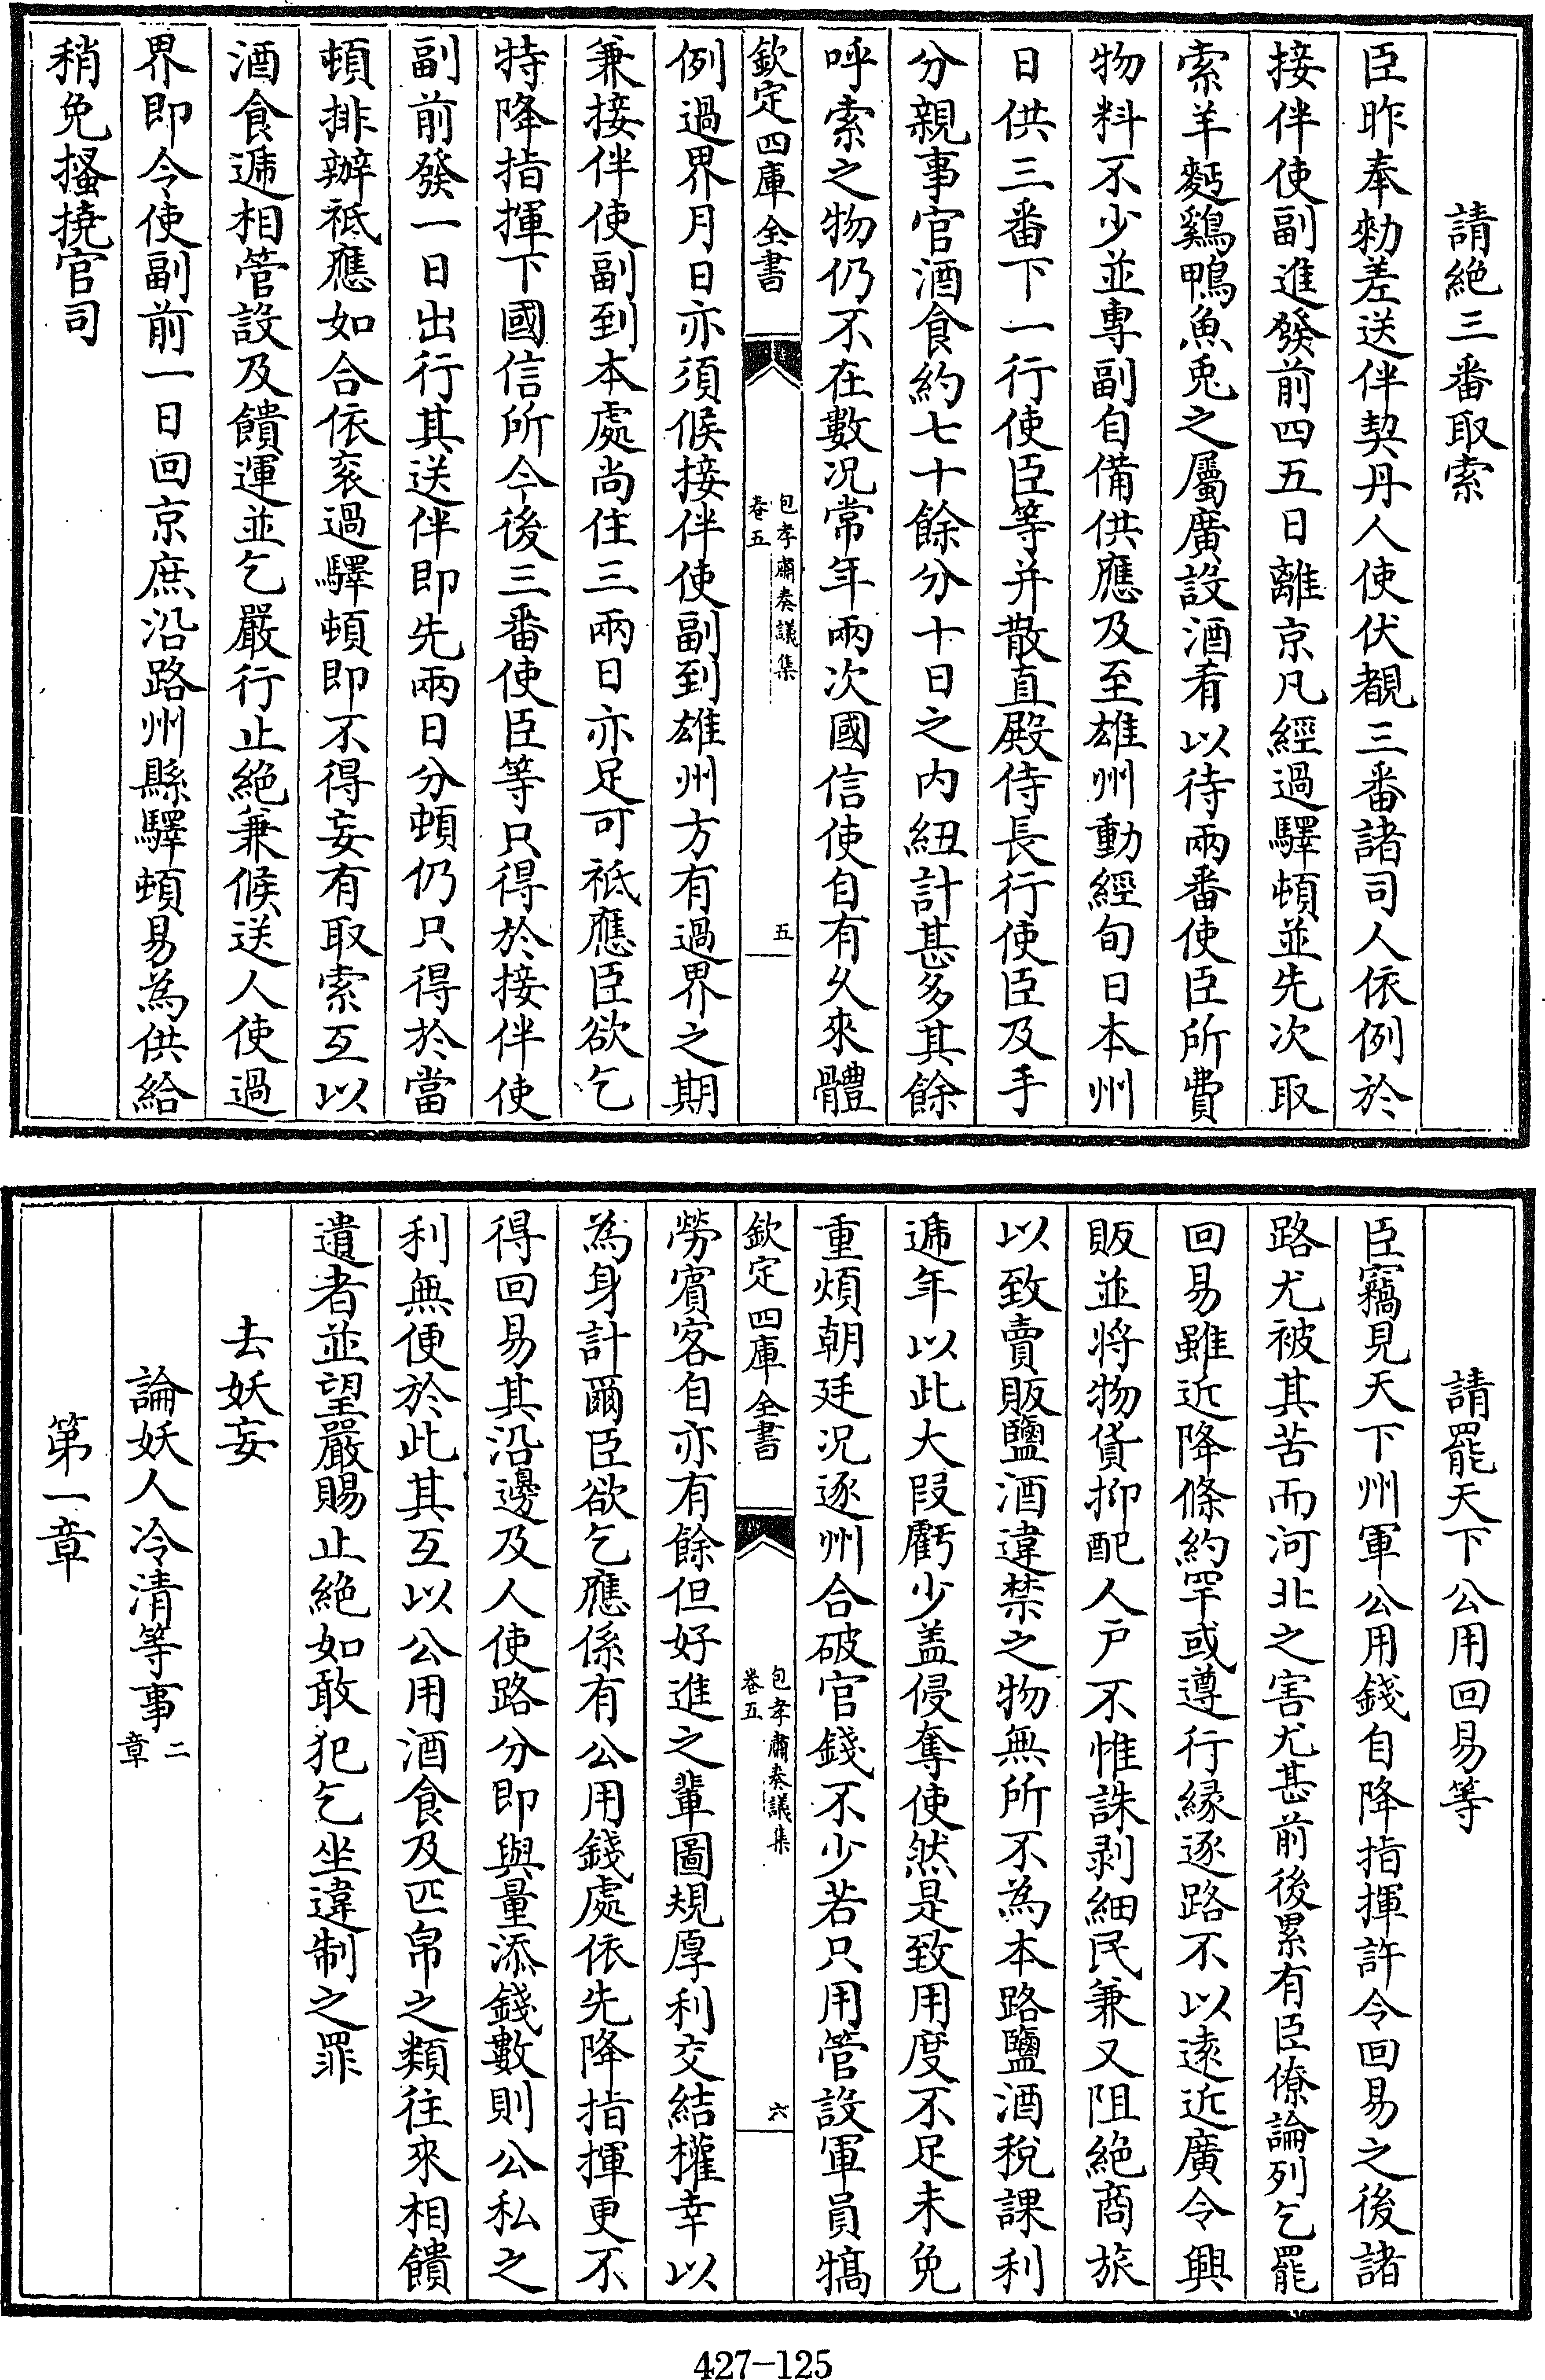 請絶三番取索
臣昨奉勅差送伴契丹人使伏覩三番諸司人依例於
接伴使副進發前四五日離京凡經過驛頓並先次取
索羊麫鷄鴨魚兎之屬廣設酒肴以待兩番使臣所費
物料不少並專副自備供應及至雄州動經旬日本州
日供三番下一行使臣等并散直殿侍長行使臣及手
分親事官酒食約七十餘分十日之内紐計甚多其餘
呼索之物仍不在數况常年兩次國信使自有久來體
欽定四庫全書
包孝肅奏議集
卷五
五
例過界月日亦須候接伴使副到雄州方有過界之期
兼接伴使副到本處尚住三兩日亦足可祗應臣欲乞
特降指揮下國信所今後三番使臣等只得於接伴使
副前發一日出行其送伴即先兩日分頓仍只得於當
頓排辦祗應如合依衮過驛頓即不得妄有取索互以
酒食逓相管設及饋運並乞嚴行止絶兼候送人使過
界即令使副前一日回京庶沿路州縣驛頓易為供給
稍免搔撓官司
請罷天下公用回易等
臣竊見天下州軍公用錢自降指揮許令回易之後諸
路尤被其苦而河北之害尤甚前後累有臣僚論列乞罷
回易雖近降條約罕或遵行縁逐路不以遠近廣令興
販並將物貨抑配人戸不惟誅剥細民兼又阻絶商旅
以致賣販鹽酒違禁之物無所不為本路鹽酒税課利
逓年以此大段虧少盖侵奪使然是致用度不足未免
重煩朝廷况逐州合破官錢不少若只用管設軍員犒
欽定四庫全書
包孝肅奏議集
卷五
六
勞賓客自亦有餘但好進之輩圖規厚利交結權幸以
為身計爾臣欲乞應係有公用錢處依先降指揮更不
得回易其沿邊及人使路分即與量添錢數則公私之
利無便於此其互以公用酒食及匹帛之類往來相饋
遺者並望嚴賜止絶如敢犯乞坐違制之罪
去妖妄
論妖人冷清等事二章
第一章
427-125